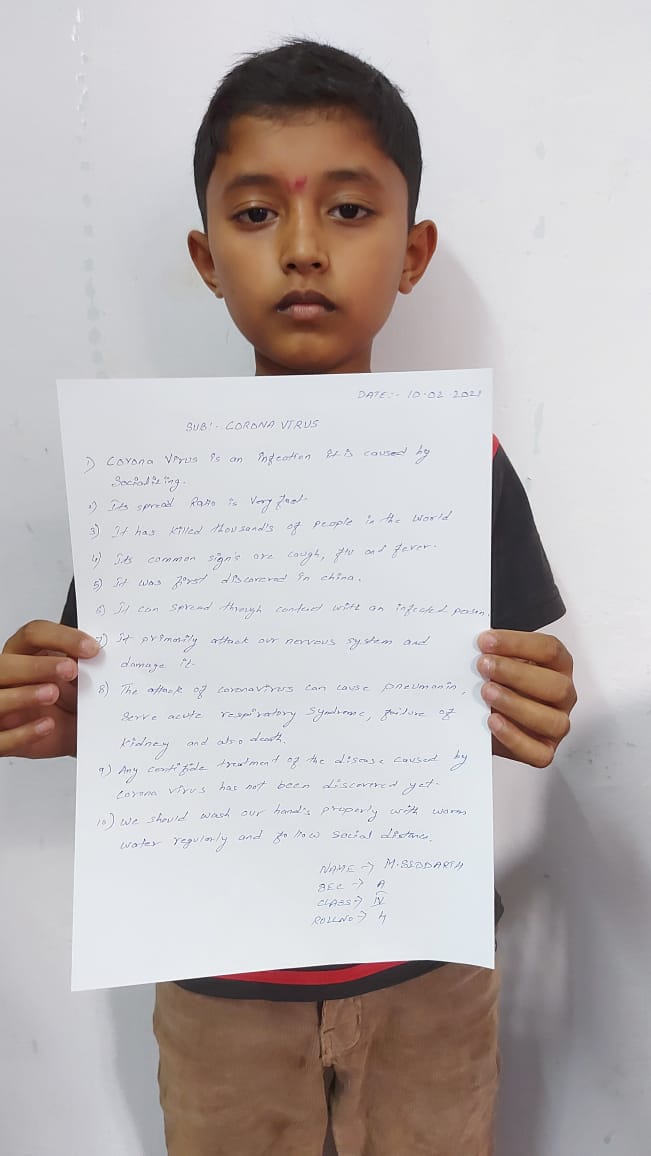 DATE:- 10-02-2021
SUB:- CORONA VIRUS
1) Corona Virus is an infection it is caused by
Socializing.
2) Its spread Ratio is Very fast.
3) It has killed thousand's of people in the World
4) Its common sign's are cough, flu and fever.
5) It was first discovered in china.
6) It can spread through contact with an infected person.
7) It primarily attack our nervous system and
damage it.
8) The attack of coronavirus can cause pneumonia,
Serve acute respiratory Syndrome, failure of
kidney and also death.
9) Any treatment of the disease caused by
corona virus has not been discovered yet.
10) We should wash our hand's properly with warm
water regularly and follow social distance.
NAME → M.SIDDARTH
SEC → A
CLASS → IV
ROLLNO → 4